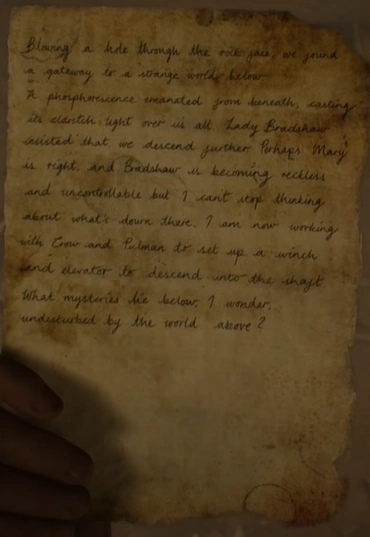 Blowing a hole through the rock face, we found
a gateway to a strange world below.
A phosphorescence emanated from beneath, casting
its eldritch light over us all. Lady Bradshaw
insisted that we descend further. Perhaps Mary
is right, and Bradshaw is becoming reckless
and uncontrollable but I can't stop thinking
about what's down there. I am now working
with Crow and Pulman to set up a winch
and elevator to descend into the shaft.
What mysteries lie below, I wonder,
undisturbed by the world above?